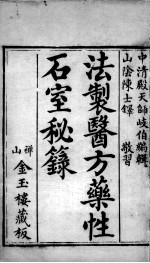 中清殿天師岐伯編輯
山陰陳士鐸 敬習
法製醫方藥性
石室秘籙
禪山 金玉樓藏板